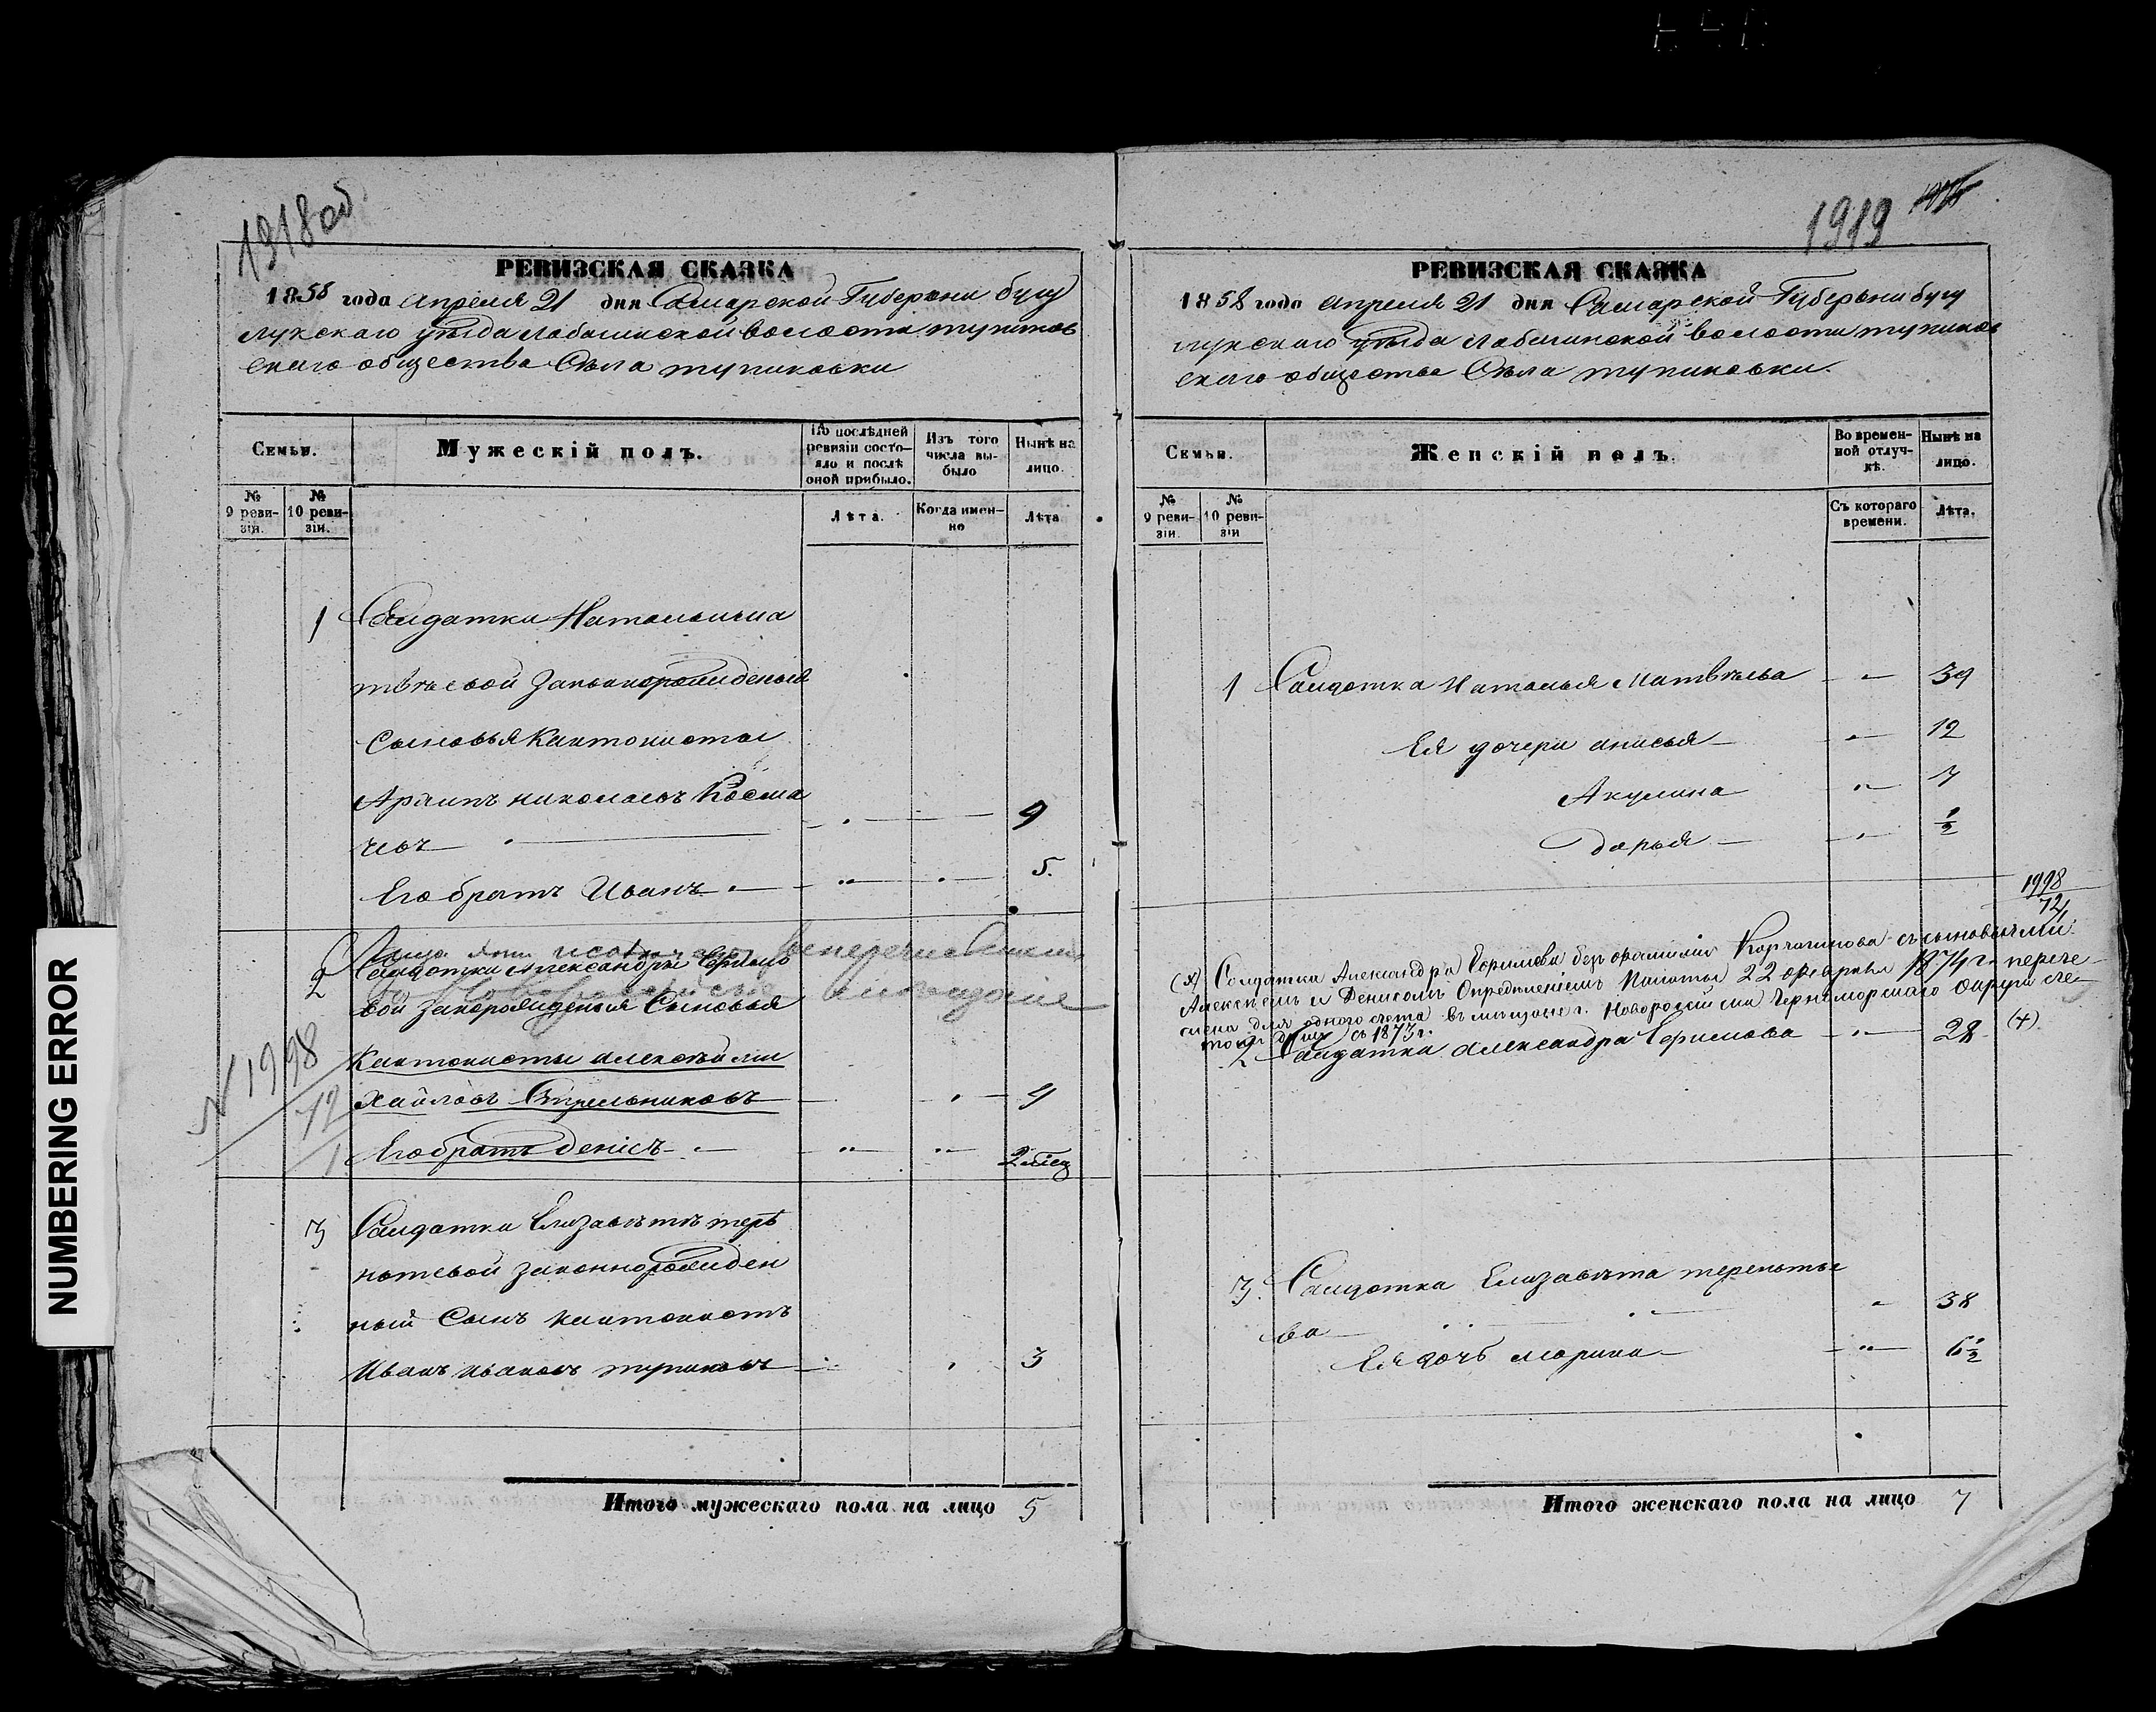 NUMBERING ERROR
1918 об.
РЕВИЗСКАЯ СКАЗКА
1858 года апреля 21 дня Самарской Губерніи бугу
лускаго уѣзда волости тупиков
скаго общества Сѣла тупиковки
Семьи.
Мужескій полъ.
По послѣдней ревизіи состо-яло и послѣ оной прибыло.
Изъ того числа вы-было
Нынѣ на лицо.
№ 9 реви-зіи.
№ 10 реви-зіи.
Лѣта.
Когда имен-но
Лѣта
1 Салдатки Натальи ма
твѣевой законорожденыя
Сыновья Кантонисты
Архипъ николаевъ Косма
чевъ 9
Его братъ Иванъ 5.
Лица эти
2 Салдатки Александры Ефимо
вой законорожденыя Сыновья
Кантонисты алексѣй ми
хайловъ Стрельниковъ 4
Его братъ денисъ 2 мѣс
№ 1998
72
1
3 Салдатки Елизаветѣ тере
нтьевой законнорожден
ный Сынъ кантонистъ
Иванъ ивановъ тупиковъ 3
Итого мужескаго пола на лицо 5
1919
РЕВИЗСКАЯ СКАЗКА
1858 года апреля 21 дня Самарской Губерніи бугу
лускаго уѣзда волости тупиков
скаго общества Сѣла тупиковки.
Семьи.
Женскій полъ.
Во времен-ной отлуч-кѣ.
Нынѣ на лицо.
№ 9 реви-зіи.
№ 10 реви-зіи
Съ котораго времени.
Лѣта.
1 Салдатка Наталья Матвѣева 39
Ея дочери анисья 12
Акулина 7
дарья ½
1998
72
(х) Солдатка Александра Ефимова безъ фамиліи Корчагинова съ сыновьями
Алексѣемъ и Денисомъ Опредѣленіемъ Палаты 22 февраля 1874 г. перечи
слена для одного счета въ мѣщане г. Новороссійска Черноморскаго округа
съ 1873 г.
2 Салдатка Александра Ефимова 28 (х)
3. Салдатка Елизавета терентье
ва 38
Ея дочь марина 6½
Итого женскаго пола на лицо 7